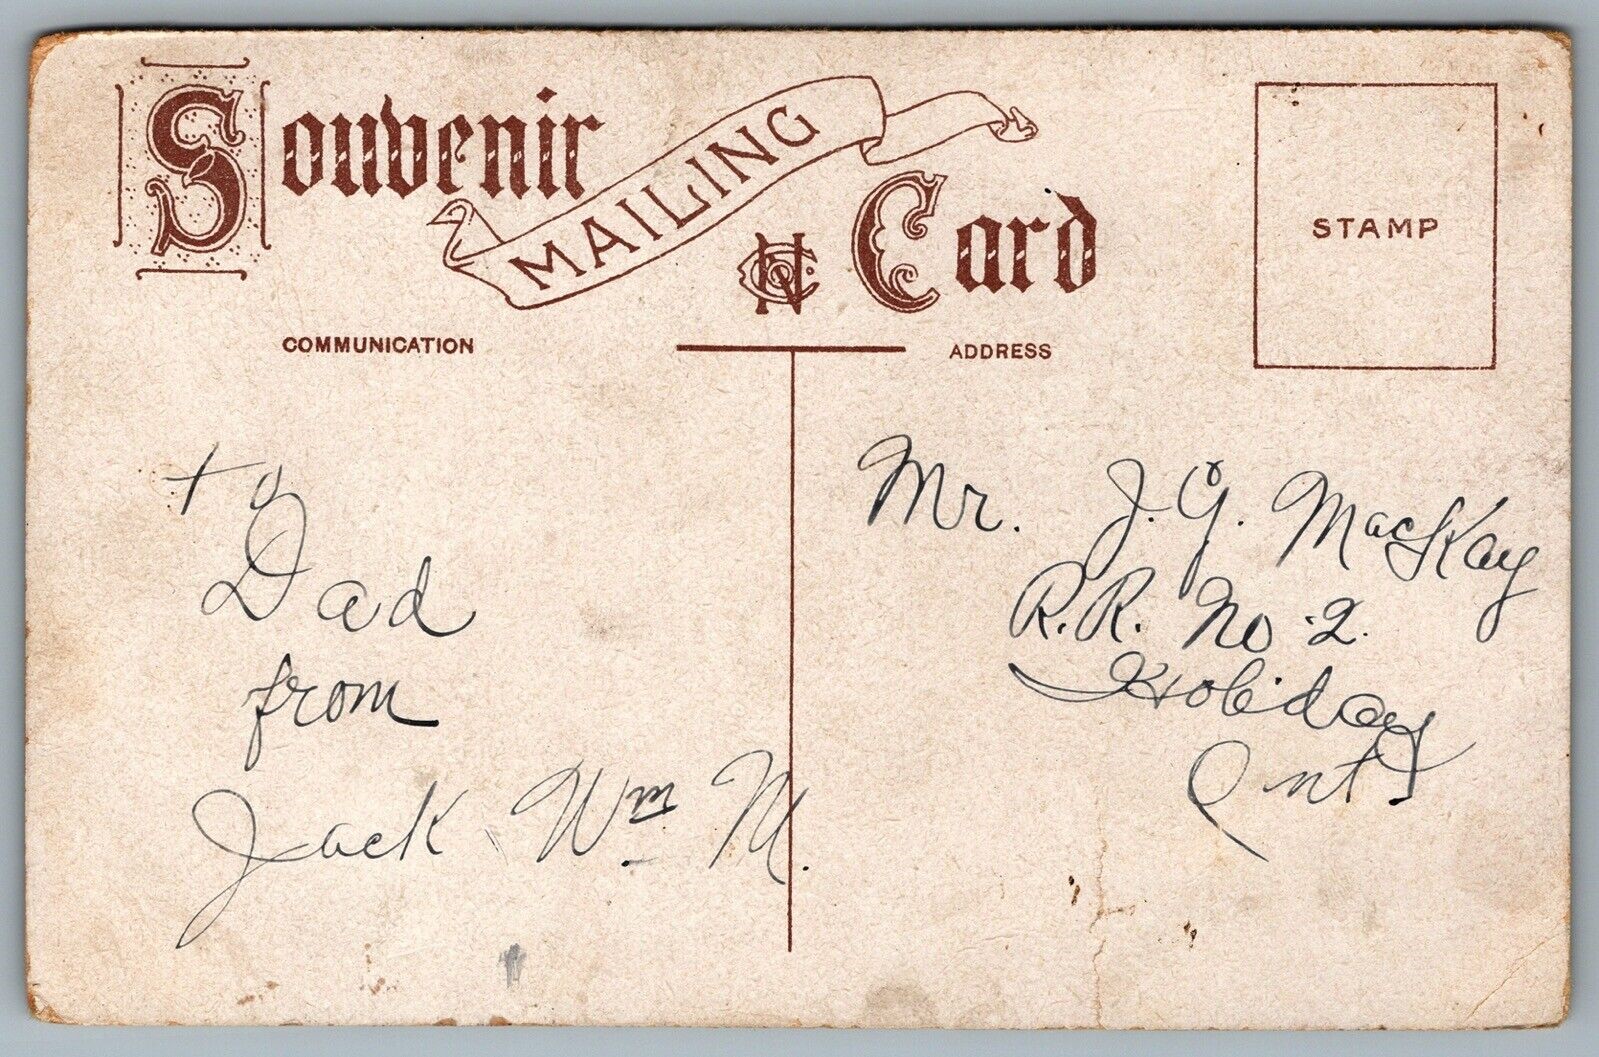 Souvenir
MAILING
Card
STAMP
COMMUNICATION
ADDRESS
to
Dad
from
Jack Wm M.
Mr. J. G. MacKay
R.R. No 2.
Holiday
Ont.